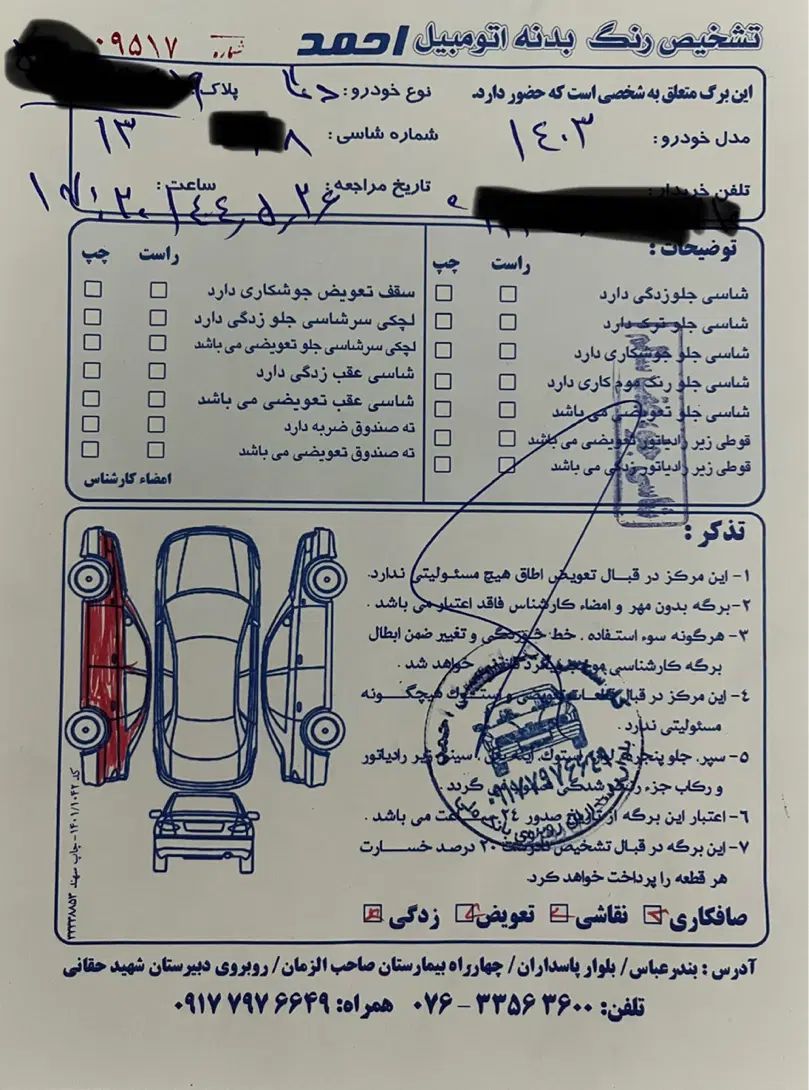 تشخیص رنگ بدنه اتومبیل احمد
شماره ۰۹۵۱۷
این برگ متعلق به شخصی است که حضور دارد.
نوع خودرو:
پلاک:
مدل خودرو: ۱۴۰۳
شماره شاسی:
۱۳
تلفن خریدار:
تاریخ مراجعه:
ساعت:
توضیحات:
راست چپ
شاسی جلوزدگی دارد
شاسی جلو ترک دارد
شاسی جلو جوشکاری دارد
شاسی جلو رنگ موم کاری دارد
شاسی جلو تعویضی می باشد
قوطی زیر رادیاتور تعویضی می باشد
قوطی زیر رادیاتور زدگی می باشد
راست چپ
سقف تعویض جوشکاری دارد
لچکی سرشاسی جلو زدگی دارد
لچکی سرشاسی جلو تعویضی می باشد
شاسی عقب زدگی دارد
شاسی عقب تعویضی می باشد
ته صندوق ضربه دارد
ته صندوق تعویضی می باشد
امضاء کارشناس
تذکر:
۱- این مرکز در قبال تعویض اطاق هیچ مسئولیتی ندارد.
۲- برگه بدون مهر و امضاء کارشناس فاقد اعتبار می باشد.
۳- هرگونه سوء استفاده، خط خوردگی و تغییر ضمن ابطال
برگه کارشناسی خواهد شد.
۴- این مرکز در قبال هیچگونه
مسئولیتی ندارد.
۵- سپر، جلو زیر رادیاتور
و رکاب جزء رنگ شدگی گردد.
۶- اعتبار این برگه از تاریخ صدور ۲۴ ساعت می باشد.
۷- این برگه در قبال تشخیص ۲۰ درصد خسارت
هر قطعه را پرداخت خواهد کرد.
صافکاری نقاشی تعویض زدگی
کد ۱۴۰۱/۱۰۴۲ - چاپ سهند ۳۲۲۳۸۸۵۳
آدرس: بندرعباس/ بلوار پاسداران/ چهارراه بیمارستان صاحب الزمان/ روبروی دبیرستان شهید حقانی
تلفن: ۳۶۰۰ ۳۳۵۶ - ۰۷۶ همراه: ۶۶۴۹ ۷۹۷ ۰۹۱۷